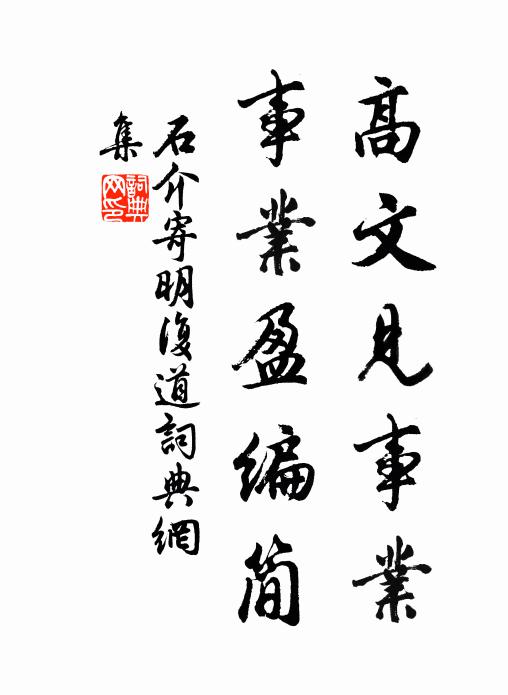 高文見事業
事業盈編简
石介寄明復道詞典網
集
詞典
网印